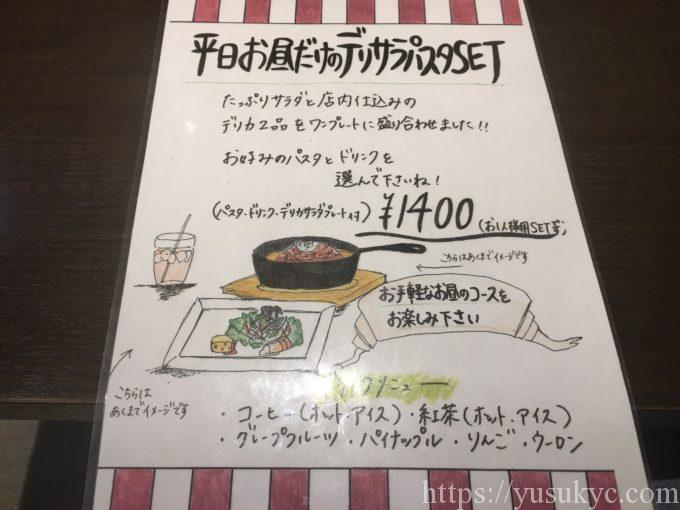 平日お昼だけのデリサラパスタSET
たっぷりサラダと店内仕込みの
デリカ2品をワンプレートに盛り合わせました!!
お好みのパスタとドリンクを
選んで下さいね!
(パスタ、ドリンク、デリカサラダプレート付) ¥1400 (お1人様用SET
こちらはあくまでイメージです
お手軽なお昼のコースを
お楽しみ下さい
こちらは
あくまでイメージです
メニュー
・コーヒー(ホット.アイス)・紅茶(ホット.アイス)
・グレープフルーツ・パイナップル・りんご・ウーロン
https://yusukyc.com